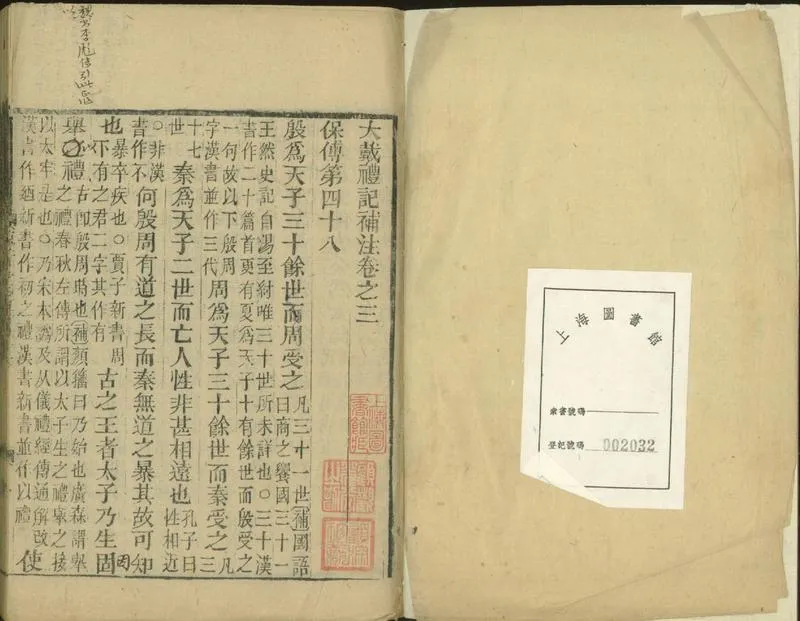 大戴禮記補注卷之三
保傅第四十八
殷爲天子三十餘世而周受之凡三十一世補國語
曰商之饗國三十一
王然史記自湯至紂唯三十世所未詳也○三十漢
書作二十篇首更有夏爲天子十有餘世而殷受之
一何故以下殷周
字漢書並作三代周爲天子三十餘世而秦受之凡三
十七
世秦爲天子二世而亡人性非甚相遠也孔子曰
性相近
○非漢
書作不何殷周有道之長而秦無道之暴其故可知
也暴卒疾也○賈子新書周
下有之君二字其作有古之王者太子乃生固因
舉禮古卽殷周時也補顏籀曰乃始也廣森謂舉
之禮春秋左傳所謂以太子生之禮舉之接
以太牢是也○乃宋本譌及从儀禮經傳通解改
漢書作迺新書作初之禮漢書新書並作以禮使
魏書李彪傳引此
上海圖書館
索書號碼
登記號碼 002032